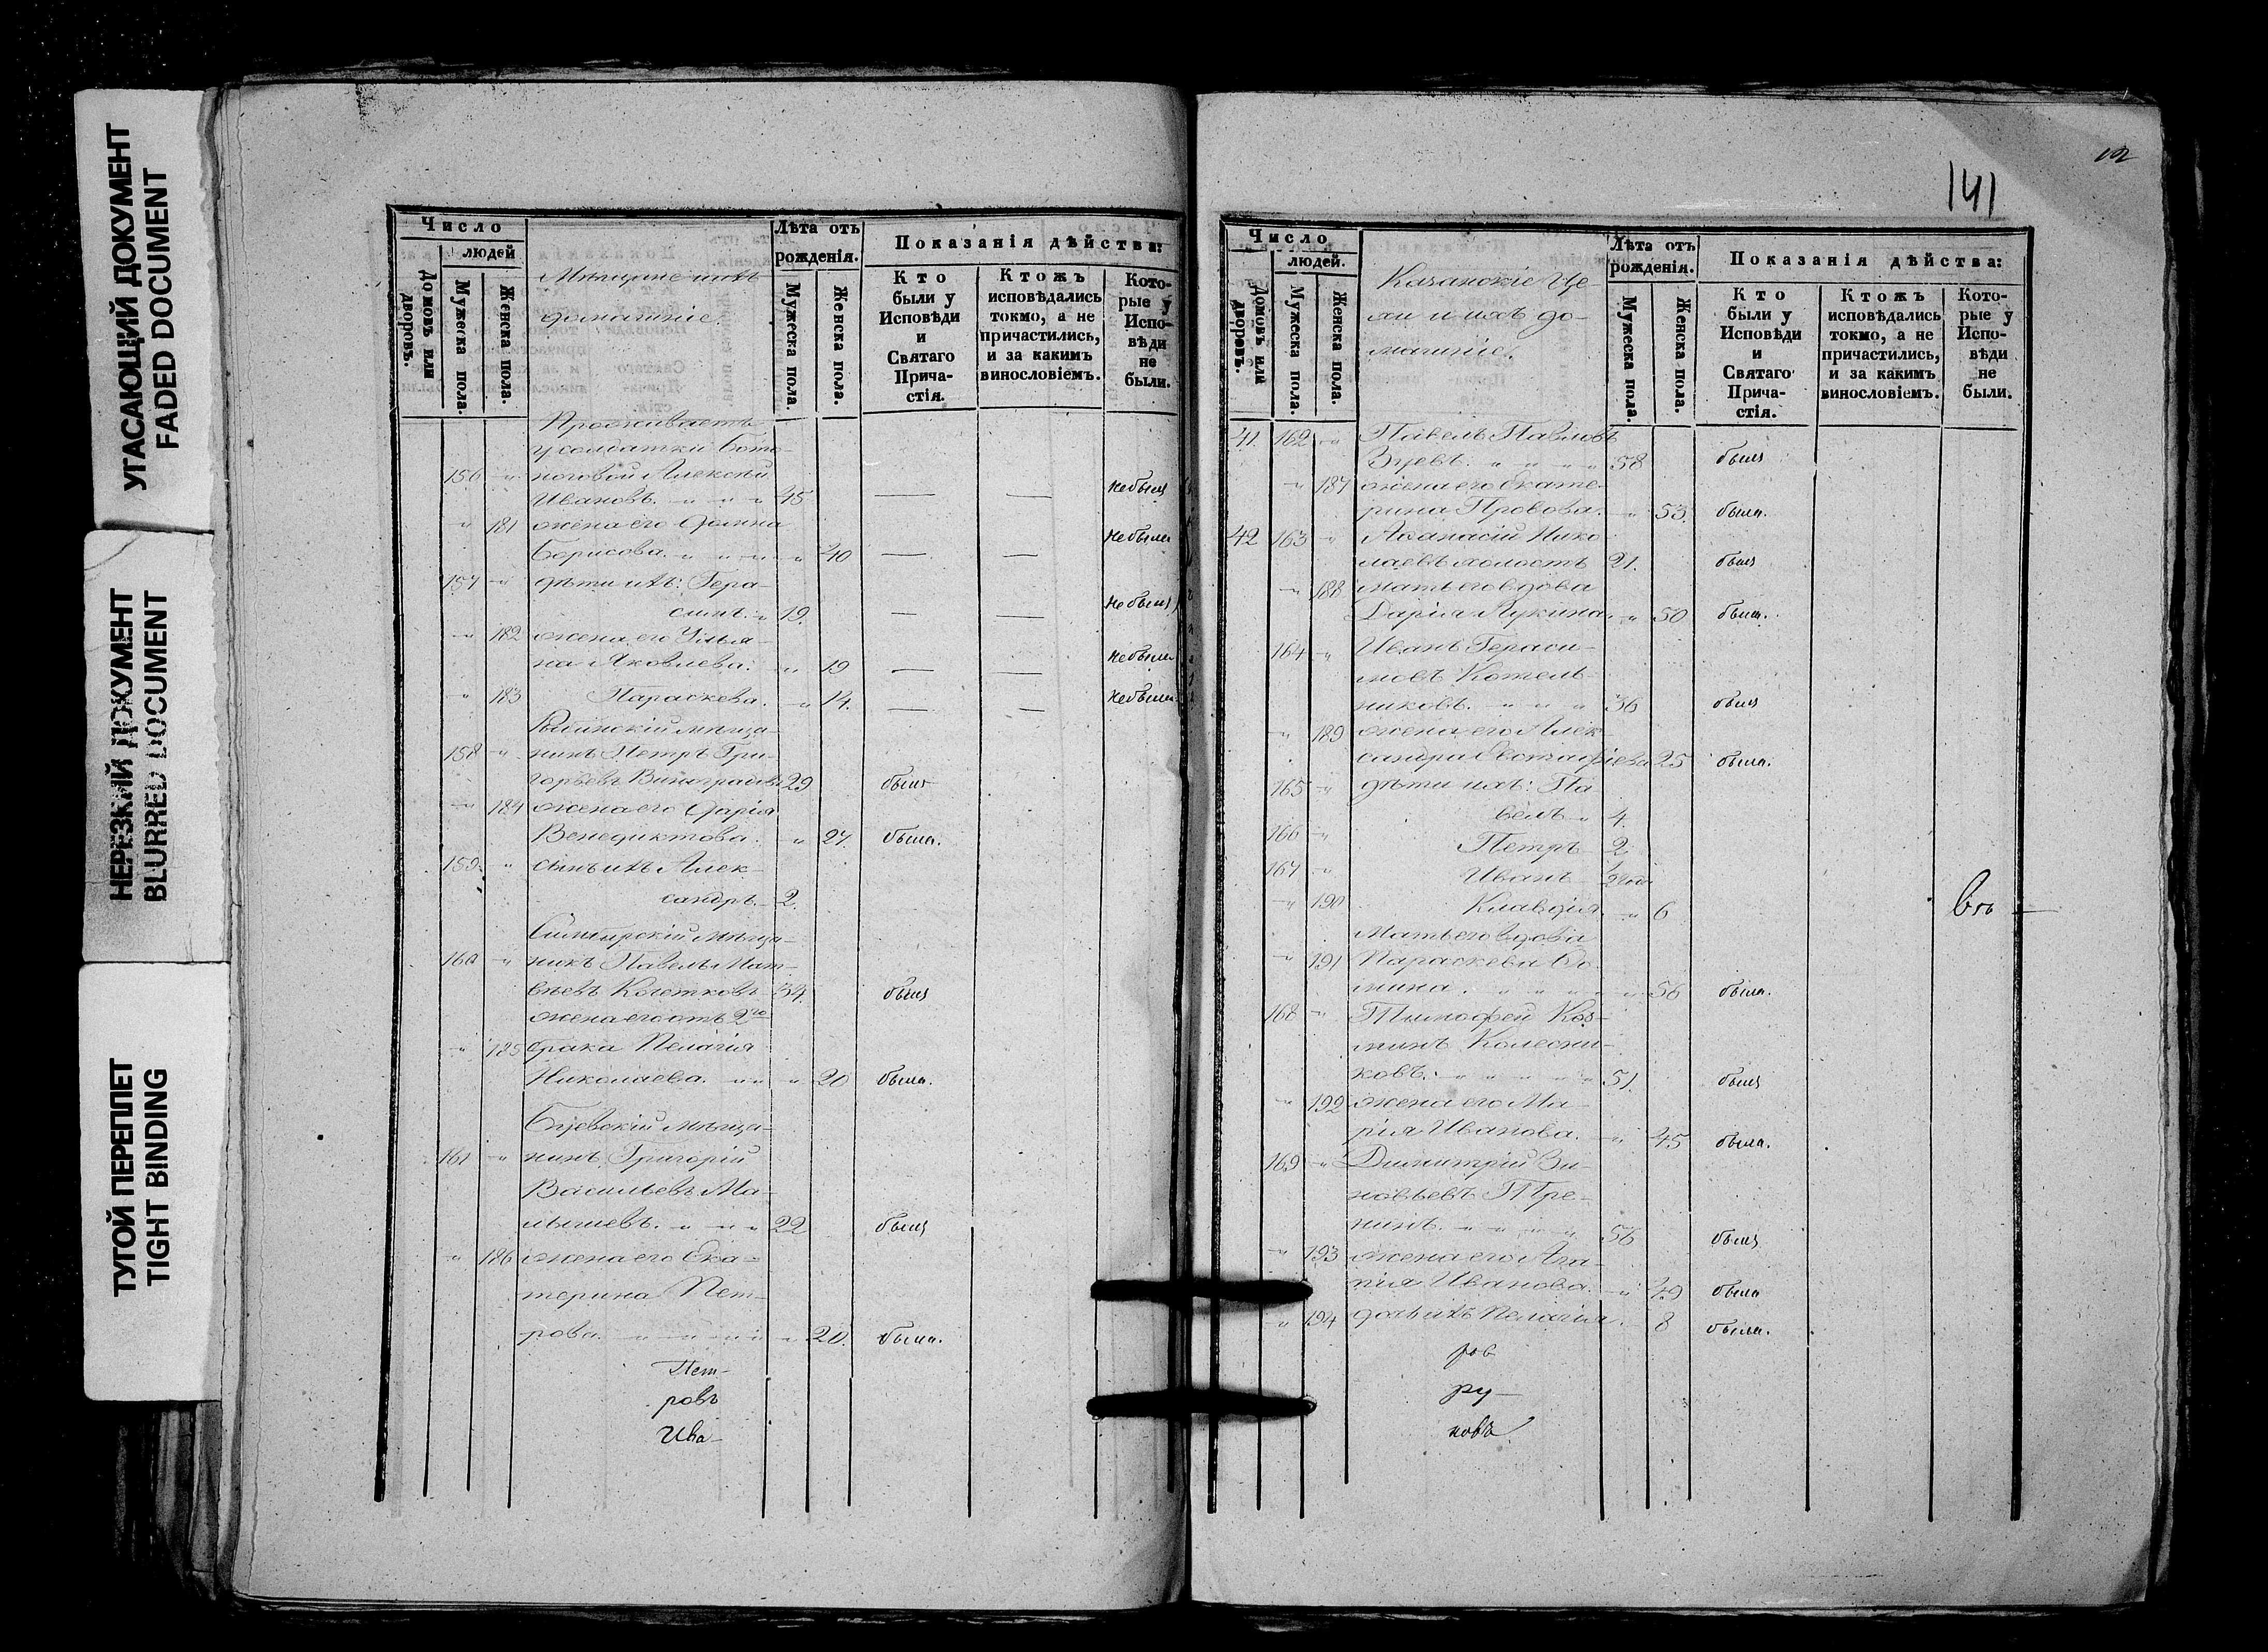 УГАСАЮЩИЙ ДОКУМЕНТ
FADED DOCUMENT
НЕРЕЗКИЙ ДОКУМЕНТ
BLURRED DOCUMENT
ТУГОЙ ПЕРЕПЛЕТ
TIGHT BINDING
Число
людей
Домовъ или дворовъ.
Мужеска пола.
Женска пола.
Мѣщане и ихъ
домашніе.
Лѣта отъ рожденія.
Мужеска пола.
Женска пола.
Показанія дѣйства:
Кто были у Исповѣди и Святаго Прича-стія.
Ктожъ исповѣдались токмо, а не причастились, и за какимъ винословіемъ.
Кото-рые у Испо-вѣди не были.
Проживаетъ
у солдатки
156 " Алексѣй
Ивановъ. " " " 45 — — не былъ
" 181 жена его Домна
Борисова. " " " " 40 — — не была
157 " дѣти ихъ: Гера-
симъ. " 19. — — не былъ
" 182 жена его Улья-
на Яковлева. " 19 — — не была
" 183 Параскева. " 14. — — не была
мѣща-
158 " нинъ Петръ Гри-
горьевъ Виноградовъ 29 былъ
" 184 жена его Дарія
Венедиктова. " 27. была.
159. " сынъ ихъ Алек-
сандръ. 2.
Симбирскій мѣща-
160 " нинъ Павелъ Мат-
вѣевъ 34. былъ
жена его отъ 2го
" 185 брака Пелагія
Николаева. " " " 20 была.
мѣща-
161 " нинъ Григорій
Васильевъ Ма-
лышевъ. " " " 22 былъ
" 186 жена его Ека-
терина Пет-
рова. " " " " " 20. была.
Пет-
ровъ
Ива-
141
Число
людей.
Домовъ или дворовъ.
Мужеска пола.
Женска пола.
Казанскіе Це-
хи и ихъ до-
машніе.
Лѣта отъ рожденія.
Мужеска пола.
Женска пола.
Показанія дѣйства:
Кто были у Исповѣди и Святаго Прича-стія.
Ктожъ исповѣдались токмо, а не причастились, и за какимъ винословіемъ.
Кото-рые у Испо-вѣди не были.
41. 162 " Павелъ Павловъ
Зуевъ. " " " " 58 былъ
" 187 жена его Екате-
рина Провова. " 53. была.
42 163 " Аѳанасій Нико-
лаевъ холостъ 21. былъ
" 188 мать его вдова
Дарія Лукина. " 50 была.
164 " Иванъ Гераси-
мовъ Котель-
никовъ. " " " 36 былъ
" 189 жена его Алек-
сандра Евстафіева 25 была.
165 " дѣти ихъ: Па-
велъ " 4.
166 " Петръ 2
167 " Иванъ 1/2 год.
" 190 Клавдія. " 6
Мать его вдова
" 191 Параскева
" " " " 56 была.
168 " Тимофей Коз-
минъ Колесни-
ковъ. " " " " " 51. былъ
" 192 жена его Ма-
рія Иванова. " 45 была.
169 " Димитрій Зи-
новьевъ
нинъ. " " " " 56 былъ
" 193 жена его Ага-
пія Иванова. " 49 была
" 194 дочь ихъ Пелагія. 8 была.
ров
ру-
новъ